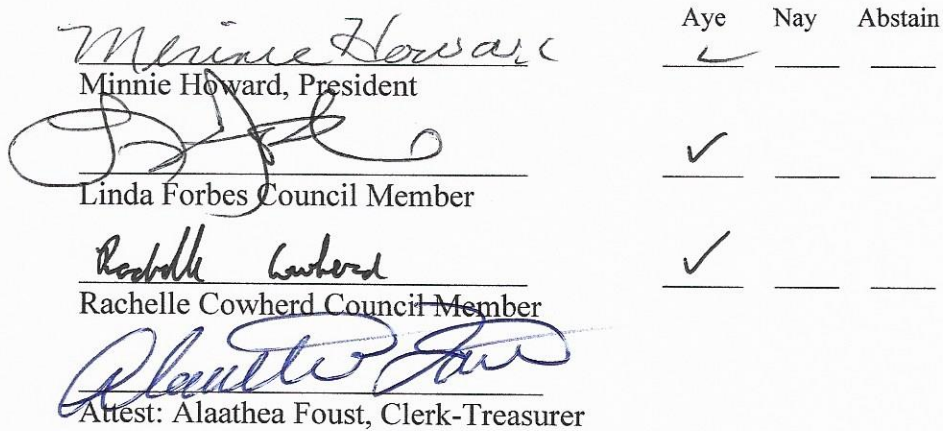 Aye Nay Abstain
Minnie Howard ✓
Minnie Howard, President
✓
Linda Forbes Council Member
Rachelle Cowherd ✓
Rachelle Cowherd Council Member
Attest: Alaathea Foust, Clerk-Treasurer